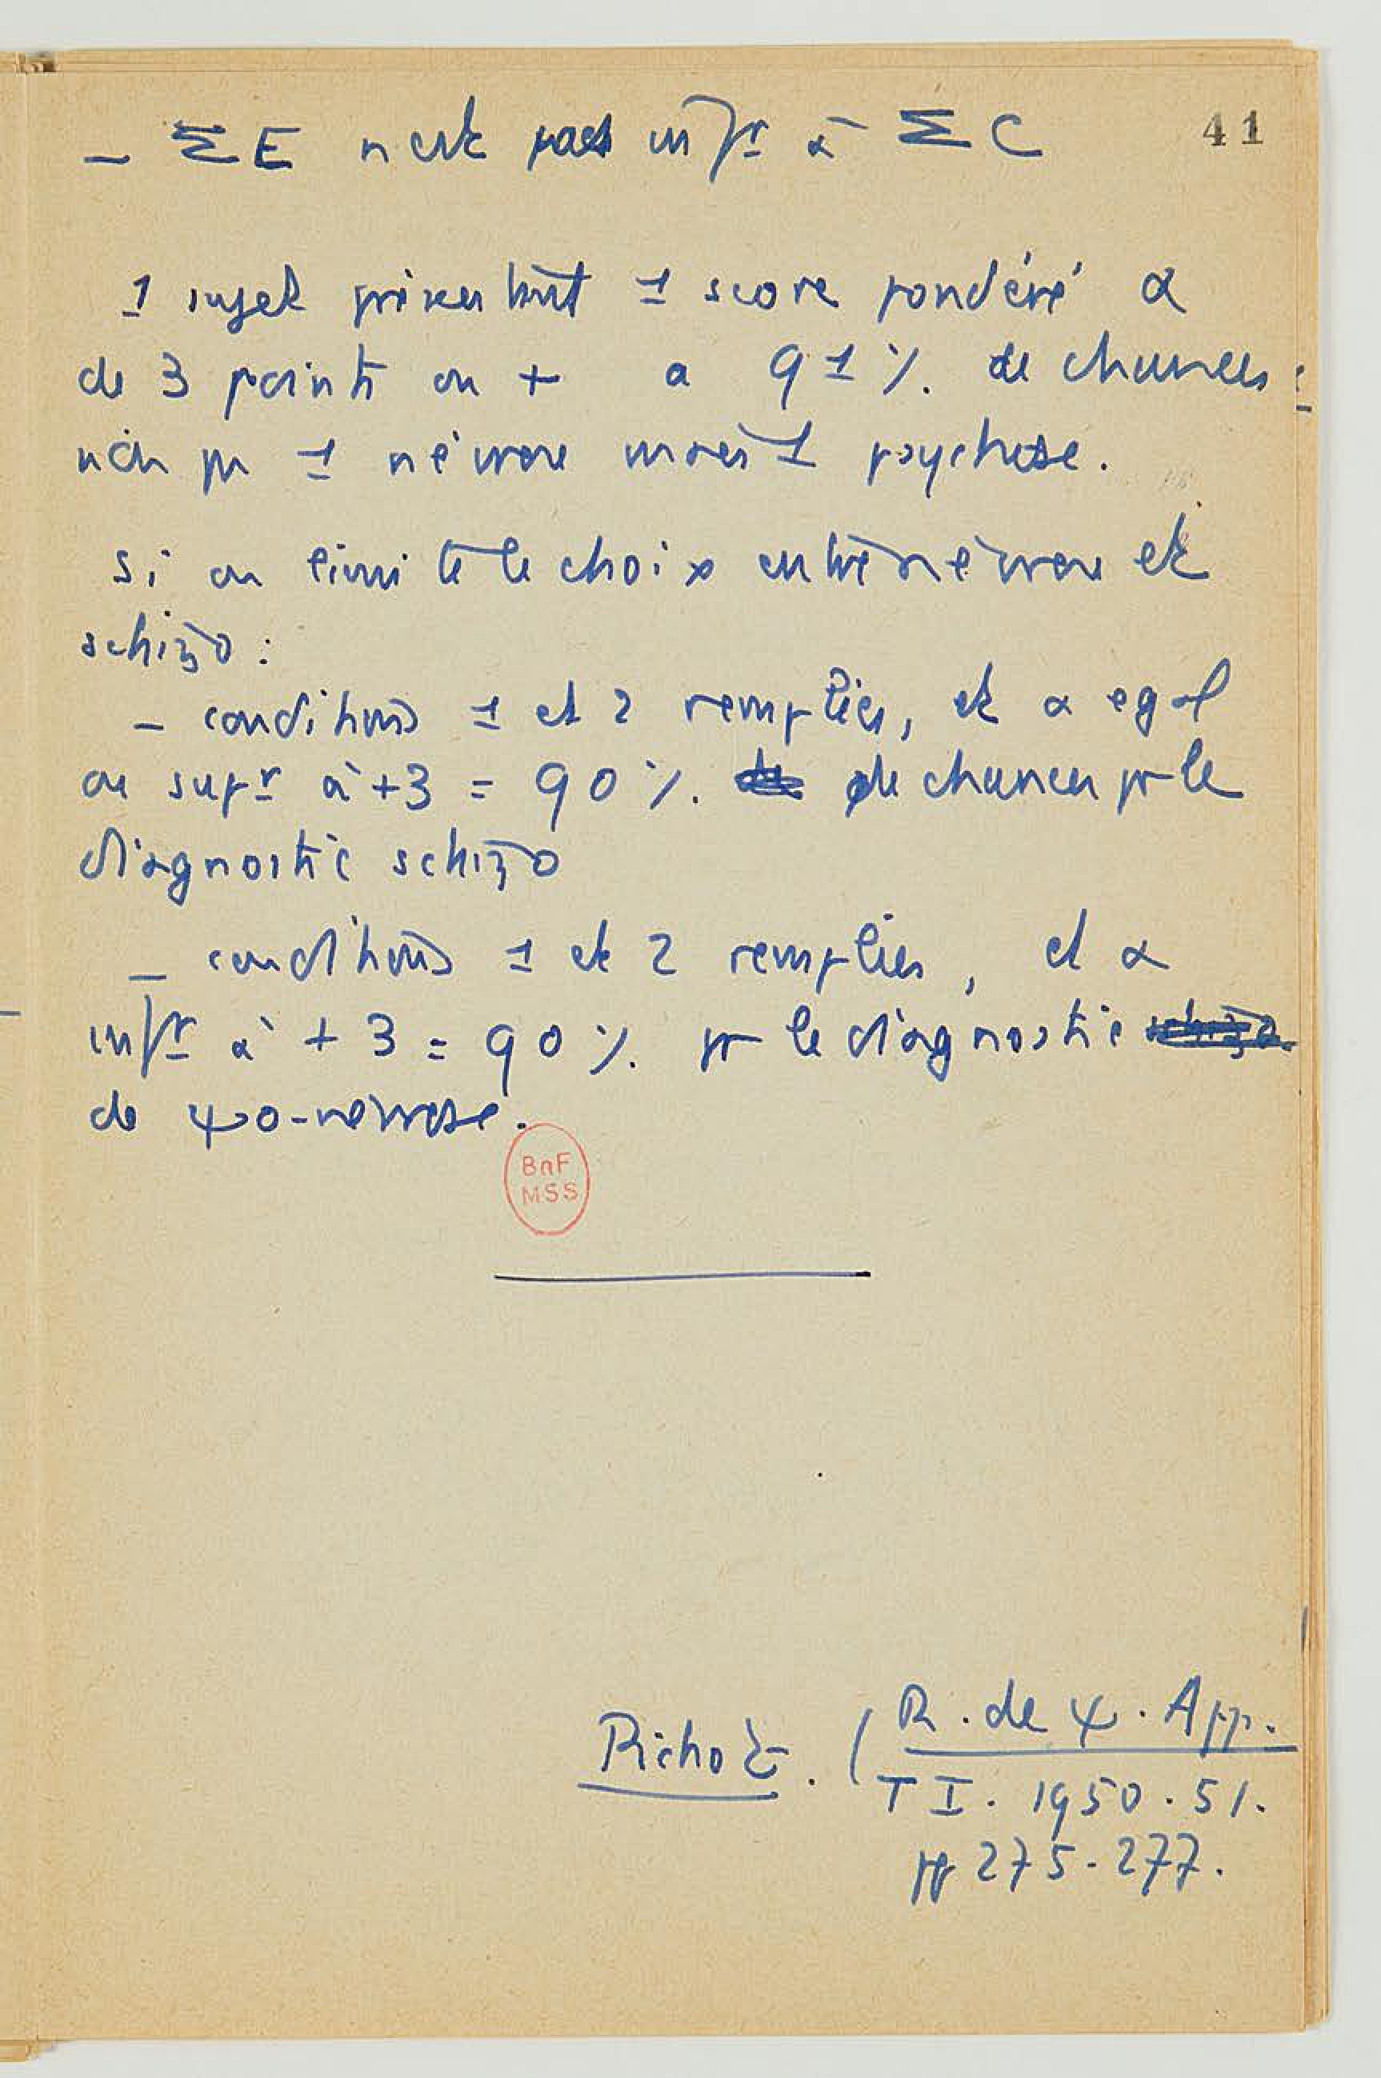 41
– ΣE n'est pas infr à ΣC
1 sujet présentant 1 score pondéré α
de 3 points ou + a 91 %. de chances
non pr 1 névrose mais 1 psychose.
Si on limite le choix entre névrose et
schizo :
– conditions 1 et 2 remplies, et α egal
ou supr à +3 = 90 %. de chances pr le
diagnostic schizo
– conditions 1 et 2 remplies, et α
infr à +3 = 90 %. pr le diagnostic schizo
de ψo-névrose.
BnF
MSS
(R. de ψ. App.
T I. 1950.51.
pp 275-277.